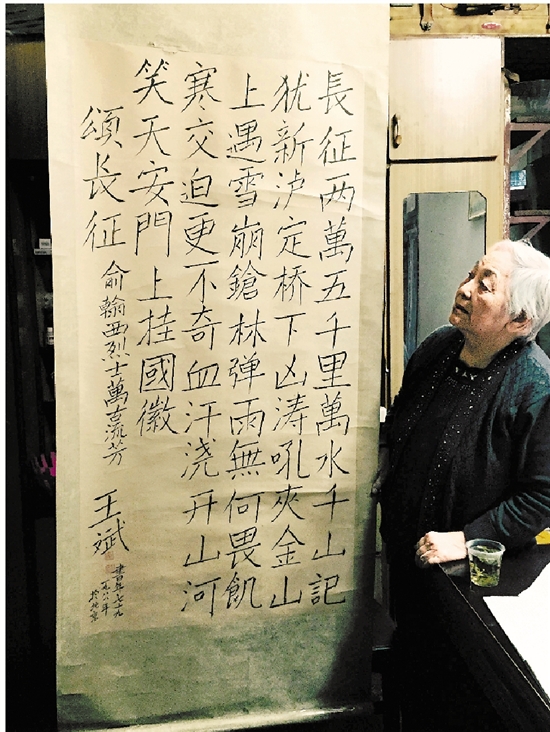 長征两萬五千里萬水千山記
犹新泸定桥下凶涛吼夾金山
上遇雪崩鎗林弹雨無何畏飢
寒交迫更不奇血汗浇开山河
笑天安門上挂國徽
頌長征
俞翰西烈士萬古流芳
王斌
書年七十九
一九八八年
於北京